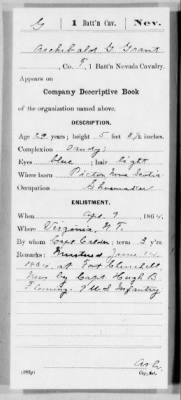 G | 1 Batt'n Cav. | Nev.
Archibald G. Grant
, Co. F, 1 Batt'n Nevada Cavalry.
Appears on
Company Descriptive Book
of the organization named above.
DESCRIPTION.
Age 22 years; height 5 feet 8½ inches.
Complexion Sandy
Eyes blue; hair light
Where born Pictou Nova Scotia
Occupation Shoemaker
ENLISTMENT.
When Apr. 9, 1864.
Where Virginia, N.T.
By whom Capt. Calder; term 3 y'rs.
Remarks: Mustered June 14
1864, at Fort Churchill
Nev. by Capt Hugh B
Fleming, 9 U.S. Infantry
Copyist.